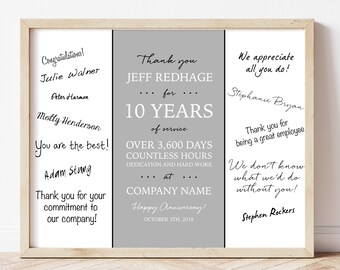 Congratulations!
Julie Walner
Peter Harmon
Molly Henderson
You are the best!
Adam Stang
Thank you for your
commitment to
our company!
Thank you
JEFF REDHAGE
for
10 YEARS
of service
OVER 3,600 DAYS
COUNTLESS HOURS
DEDICATION AND HARD WORK
at
COMPANY NAME
Happy Anniversary!
OCTOBER 5TH, 2018
We appreciate
all you do!
Stephanie Bryan
Thank you for
being a great employee
We don't know
what we'd do
without you!
Stephen Rockers